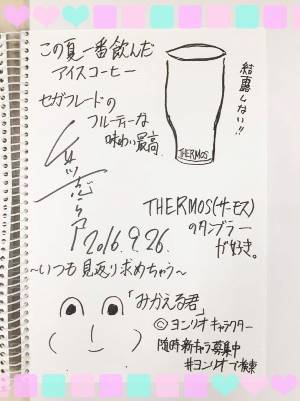 この夏一番飲んだ
アイスコーヒー
セガフレードの
フルーティーな
味わい最高
結露しない!!
THERMOS
THERMOS(サーモス)
のタンブラー
が好き。
2016.9.26.
〜いつも見返り求めちゃう〜
「みかえる君」
©ヨンリオキャラクター
随時新キャラ募集中
#ヨンリオで検索